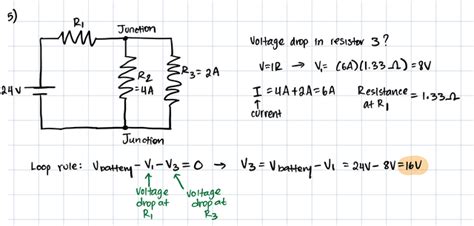 5)
R₁
Junction
24V
R₂
=4A
R₃=2A
Junction
Voltage drop in resistor 3?
V=IR → V₁= (6A)(1.33Ω)=8V
I =4A+2A=6A
↑
current
Resistance
at R₁ = 1.33Ω
Loop rule: Vbattery - V₁ - V₃ = 0 → V₃ = Vbattery - V₁ = 24V - 8V = 16V
voltage
drop at
R₁
voltage
drop at
R₃